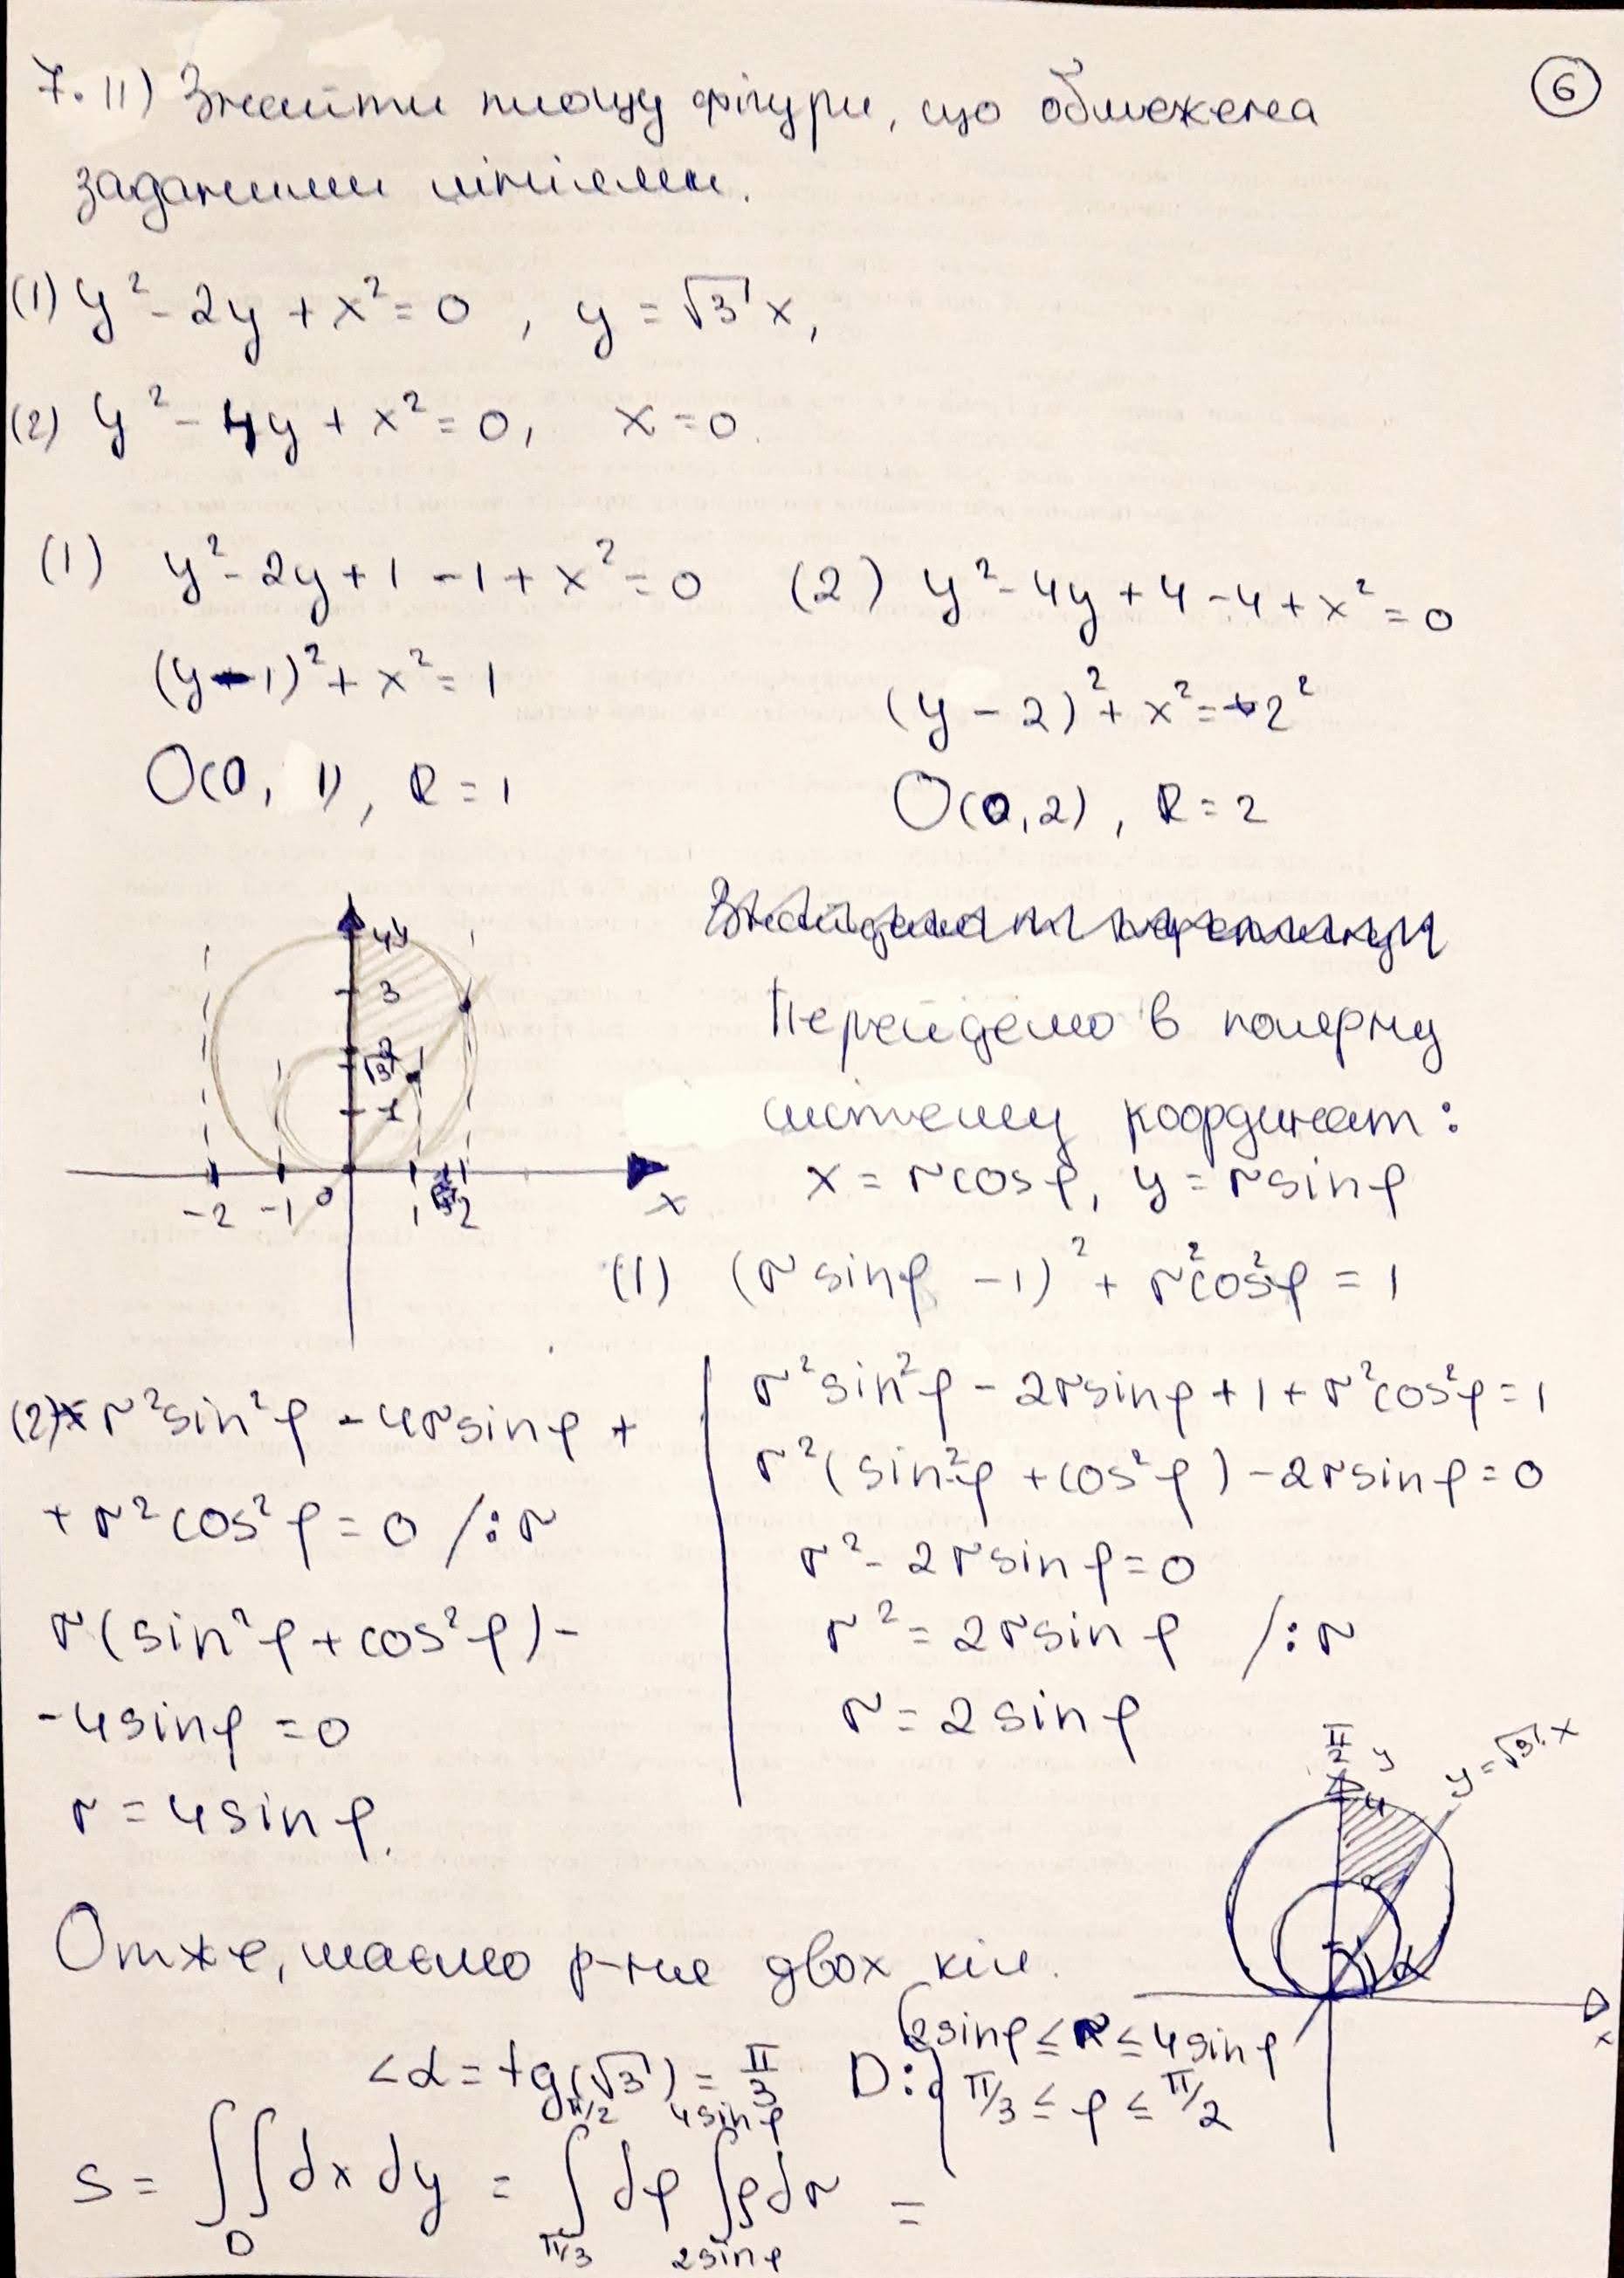 7. 11) Знайти площу фігури, що обмежена
6
заданими лініями.
(1) y² - 2y + x² = 0, y = √3 x,
(2) y² - 4y + x² = 0, x = 0.
(1) y² - 2y + 1 - 1 + x² = 0
(y - 1)² + x² = 1
O(0, 1), R = 1
(2) y² - 4y + 4 - 4 + x² = 0
(y - 2)² + x² = 2²
O(0, 2), R = 2
4 y
3
2
√3
1
-2 -1 0 1 2 x
Перейдемо в полярну
систему координат:
x = r cos φ, y = r sin φ
(1) (r sin φ - 1)² + r² cos² φ = 1
r² sin² φ - 2r sin φ + 1 + r² cos² φ = 1
r² (sin² φ + cos² φ) - 2r sin φ = 0
r² - 2r sin φ = 0
r² = 2r sin φ /: r
r = 2 sin φ
(2) r² sin² φ - 4r sin φ +
+ r² cos² φ = 0 /: r
r (sin² φ + cos² φ) -
- 4 sin φ = 0
r = 4 sin φ.
π/2 y
y = √3 x
4
2
α
x
Отже, маємо р-ня двох кіл.
∠α = tg(√3) = π/3
D: { 2 sin φ ≤ r ≤ 4 sin φ
π/3 ≤ φ ≤ π/2
S = ∬_D dx dy = ∫_{π/3}^{π/2} dφ ∫_{2 sin φ}^{4 sin φ} ρ dr =